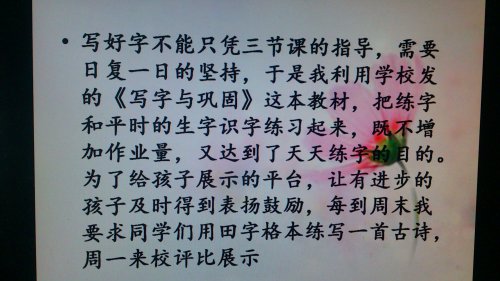 • 写好字不能只凭三节课的指导，需要
日复一日的坚持，于是我利用学校发
的《写字与巩固》这本教材，把练字
和平时的生字识字练习起来，既不增
加作业量，又达到了天天练字的目的。
为了给孩子展示的平台，让有进步的
孩子及时得到表扬鼓励，每到周末我
要求同学们用田字格本练写一首古诗，
周一来校评比展示